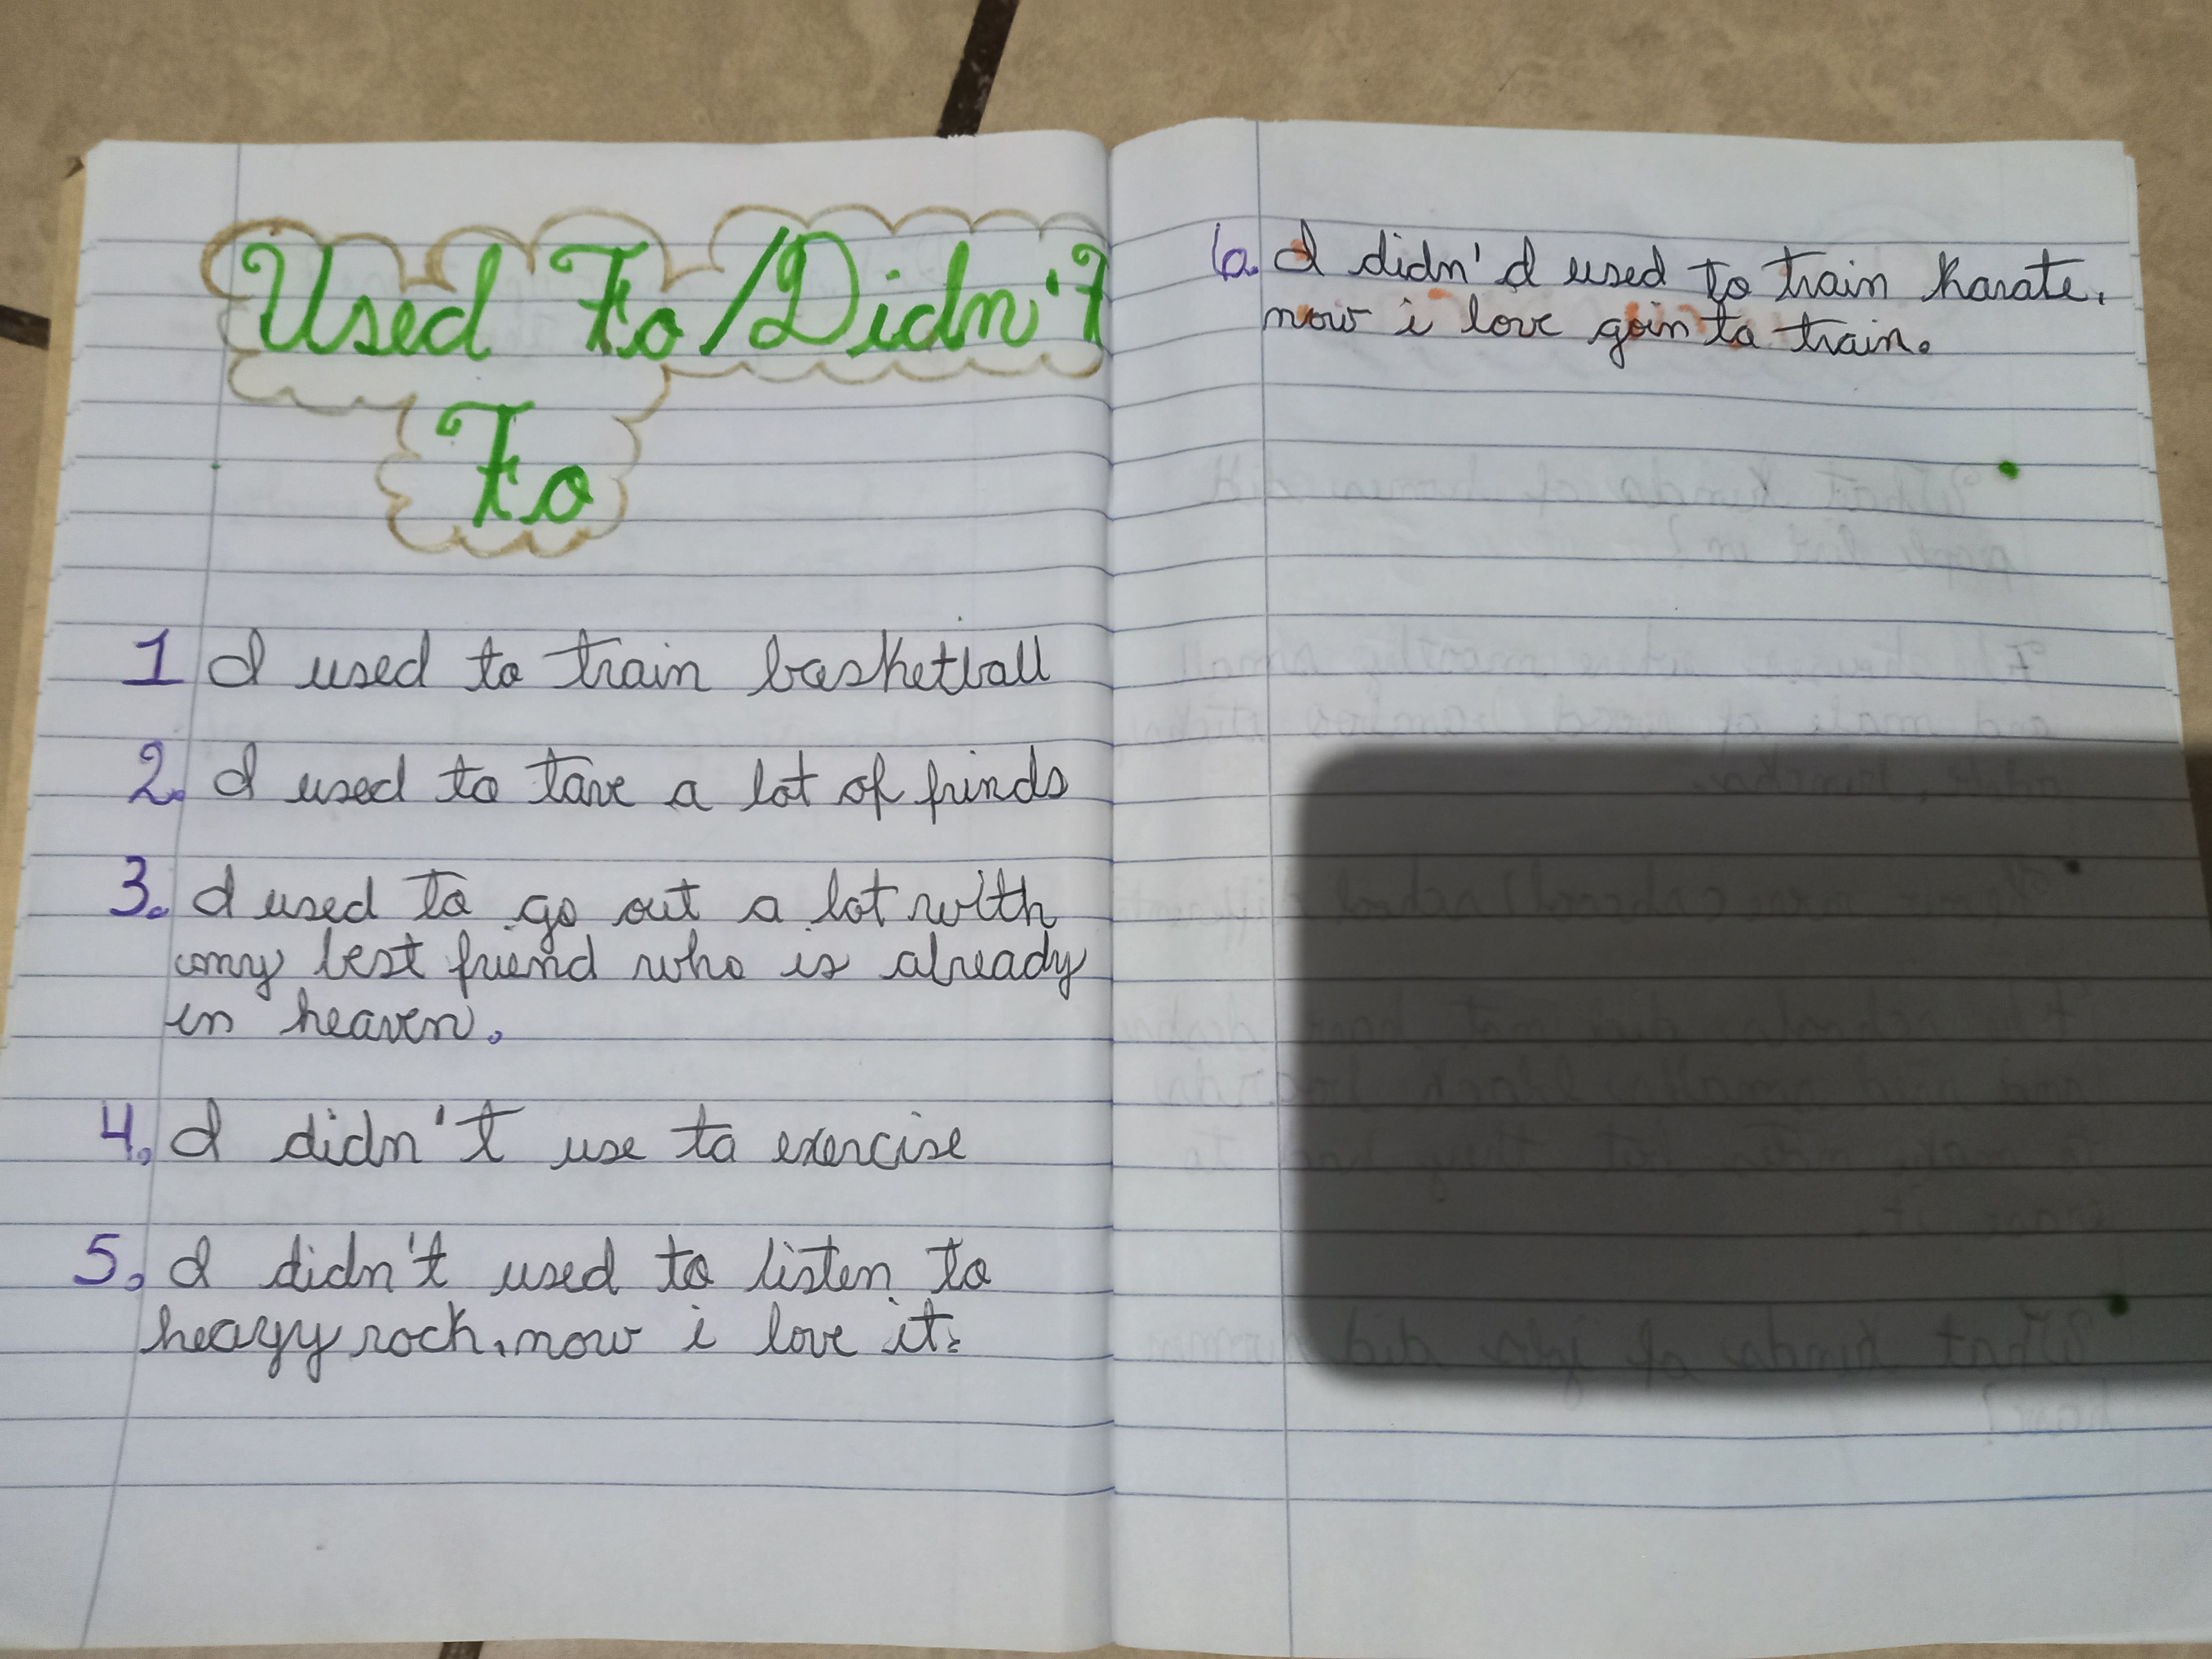 Used To/Didn't
To
1 I used to train basketball
2. I used to tave a lot of frinds
3. I used to go out a lot with
my best friend who is already
in heaven.
4. I didn't use to exercise
5. I didn't used to listen to
heavy rock, now i love it.
6. I didn'd used to train karate,
now i love goin to train.